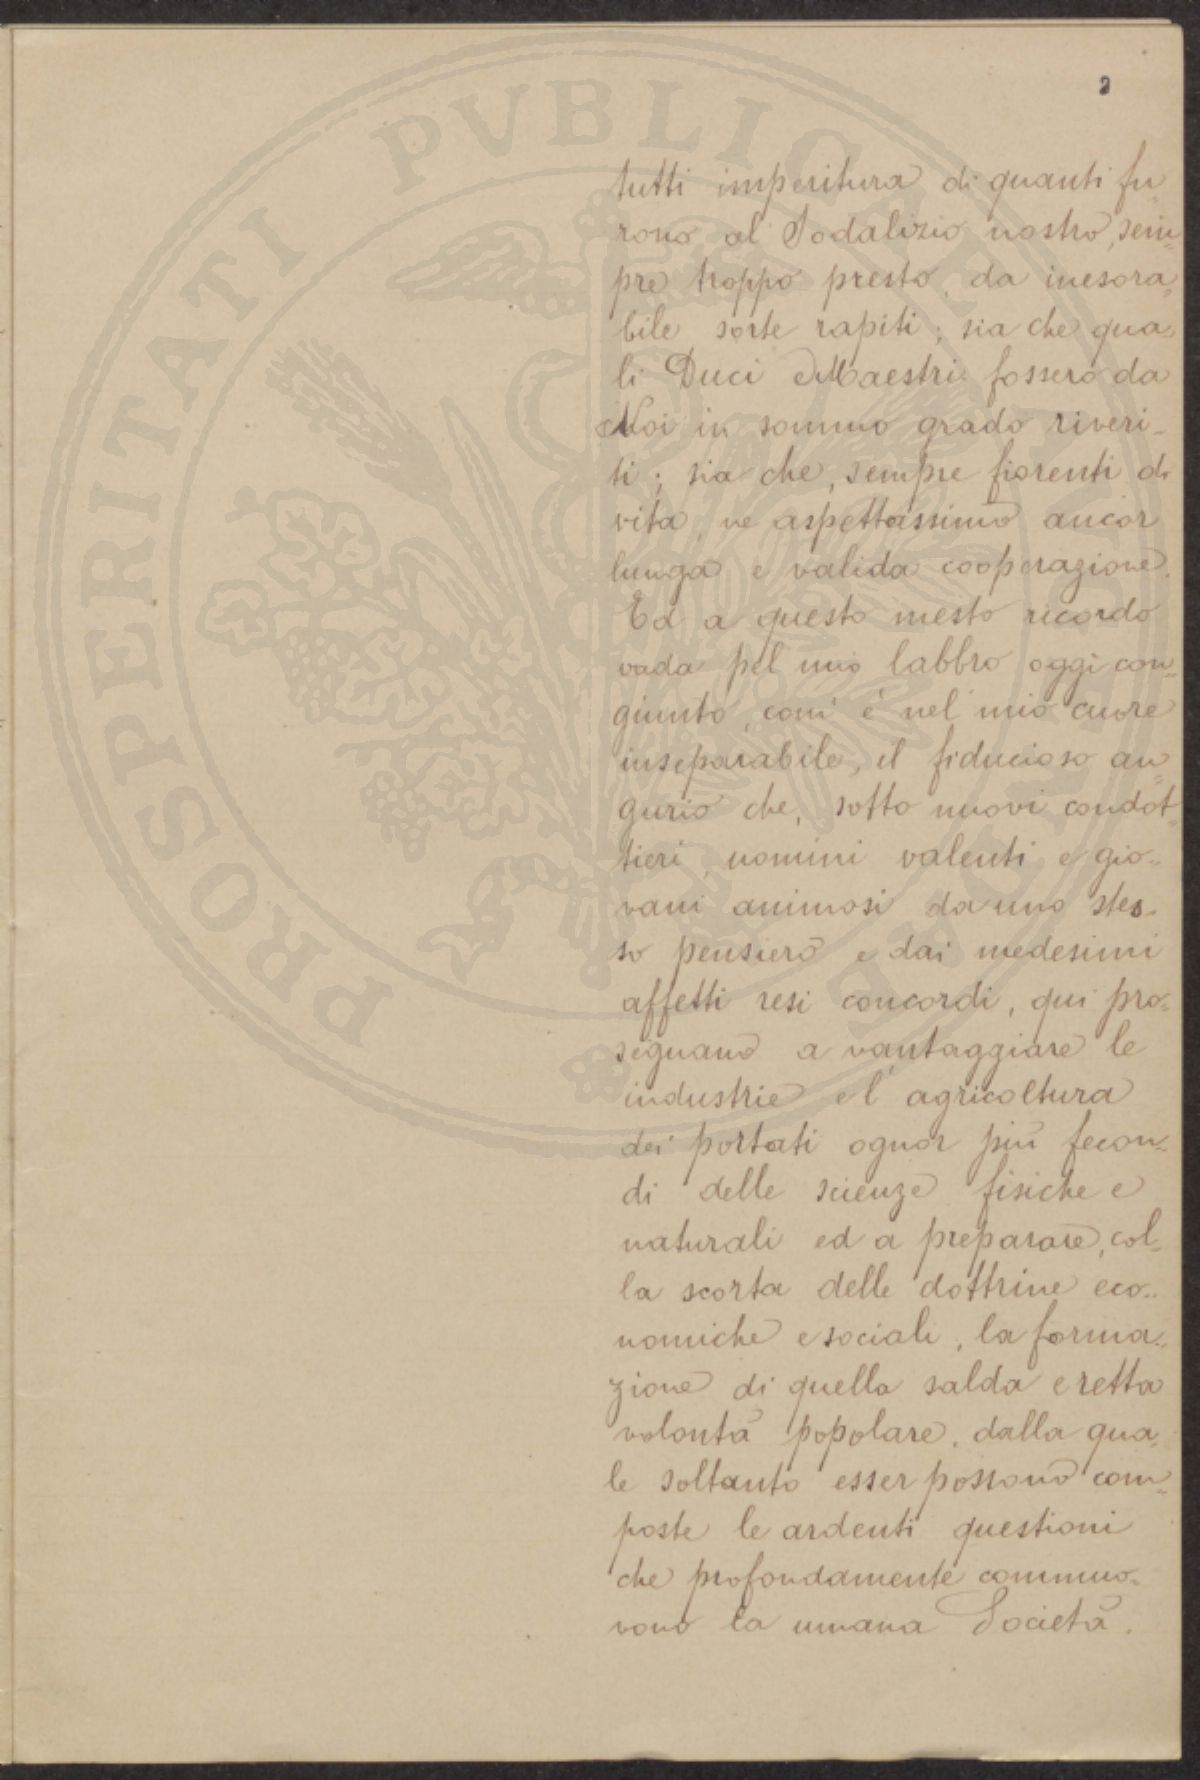 2
tutti imperitura di quanti fu
rono al Sodalizio nostro, sem=
pre troppo presto, da inesora=
bile sorte rapiti; sia che qua=
li Duci e Maestri fossero da
Noi in sommo grado riveri-
ti; sia che, sempre fiorenti di
vita, ne aspettassimo ancor
lunga e valida cooperazione.
Ed a questo mesto ricordo
vada pel mio labbro oggi con=
giunto, com' è nel mio cuore
inseparabile, il fiducioso au=
gurio che, sotto nuovi condot=
tieri, uomini valenti e gio=
vani animosi da uno stes-
so pensiero e dai medesimi
affetti resi concordi, qui pro=
seguano a vantaggiare le
industrie e l'agricoltura
dei portati ognor più fecon=
di delle scienze fisiche e
naturali ed a preparare, col=
la scorta delle dottrine eco=
nomiche e sociali, la forma=
zione di quella salda e retta
volontà popolare, dalla qua=
le soltanto esser possono com=
poste le ardenti questioni
che profondamente commuo=
vono la umana Società.
PROSPERITATI PVBLICAE